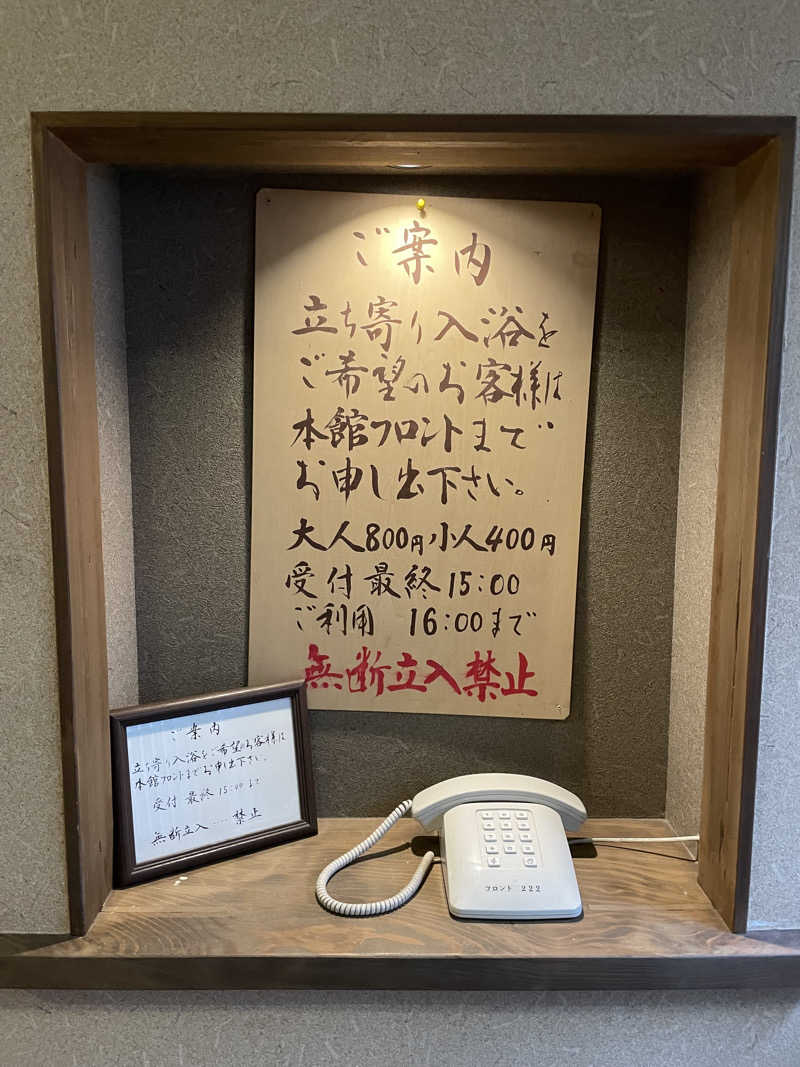 ご案内
立ち寄り入浴を
ご希望のお客様は
本館フロントまで
お申し出下さい。
大人800円小人400円
受付最終15:00
ご利用 16:00まで
無断立入禁止
ご案内
立ち寄り入浴をご希望のお客様は
本館フロントまでお申し出下さい。
受付 最終 15:00まで
無断立入....禁止
フロント 222